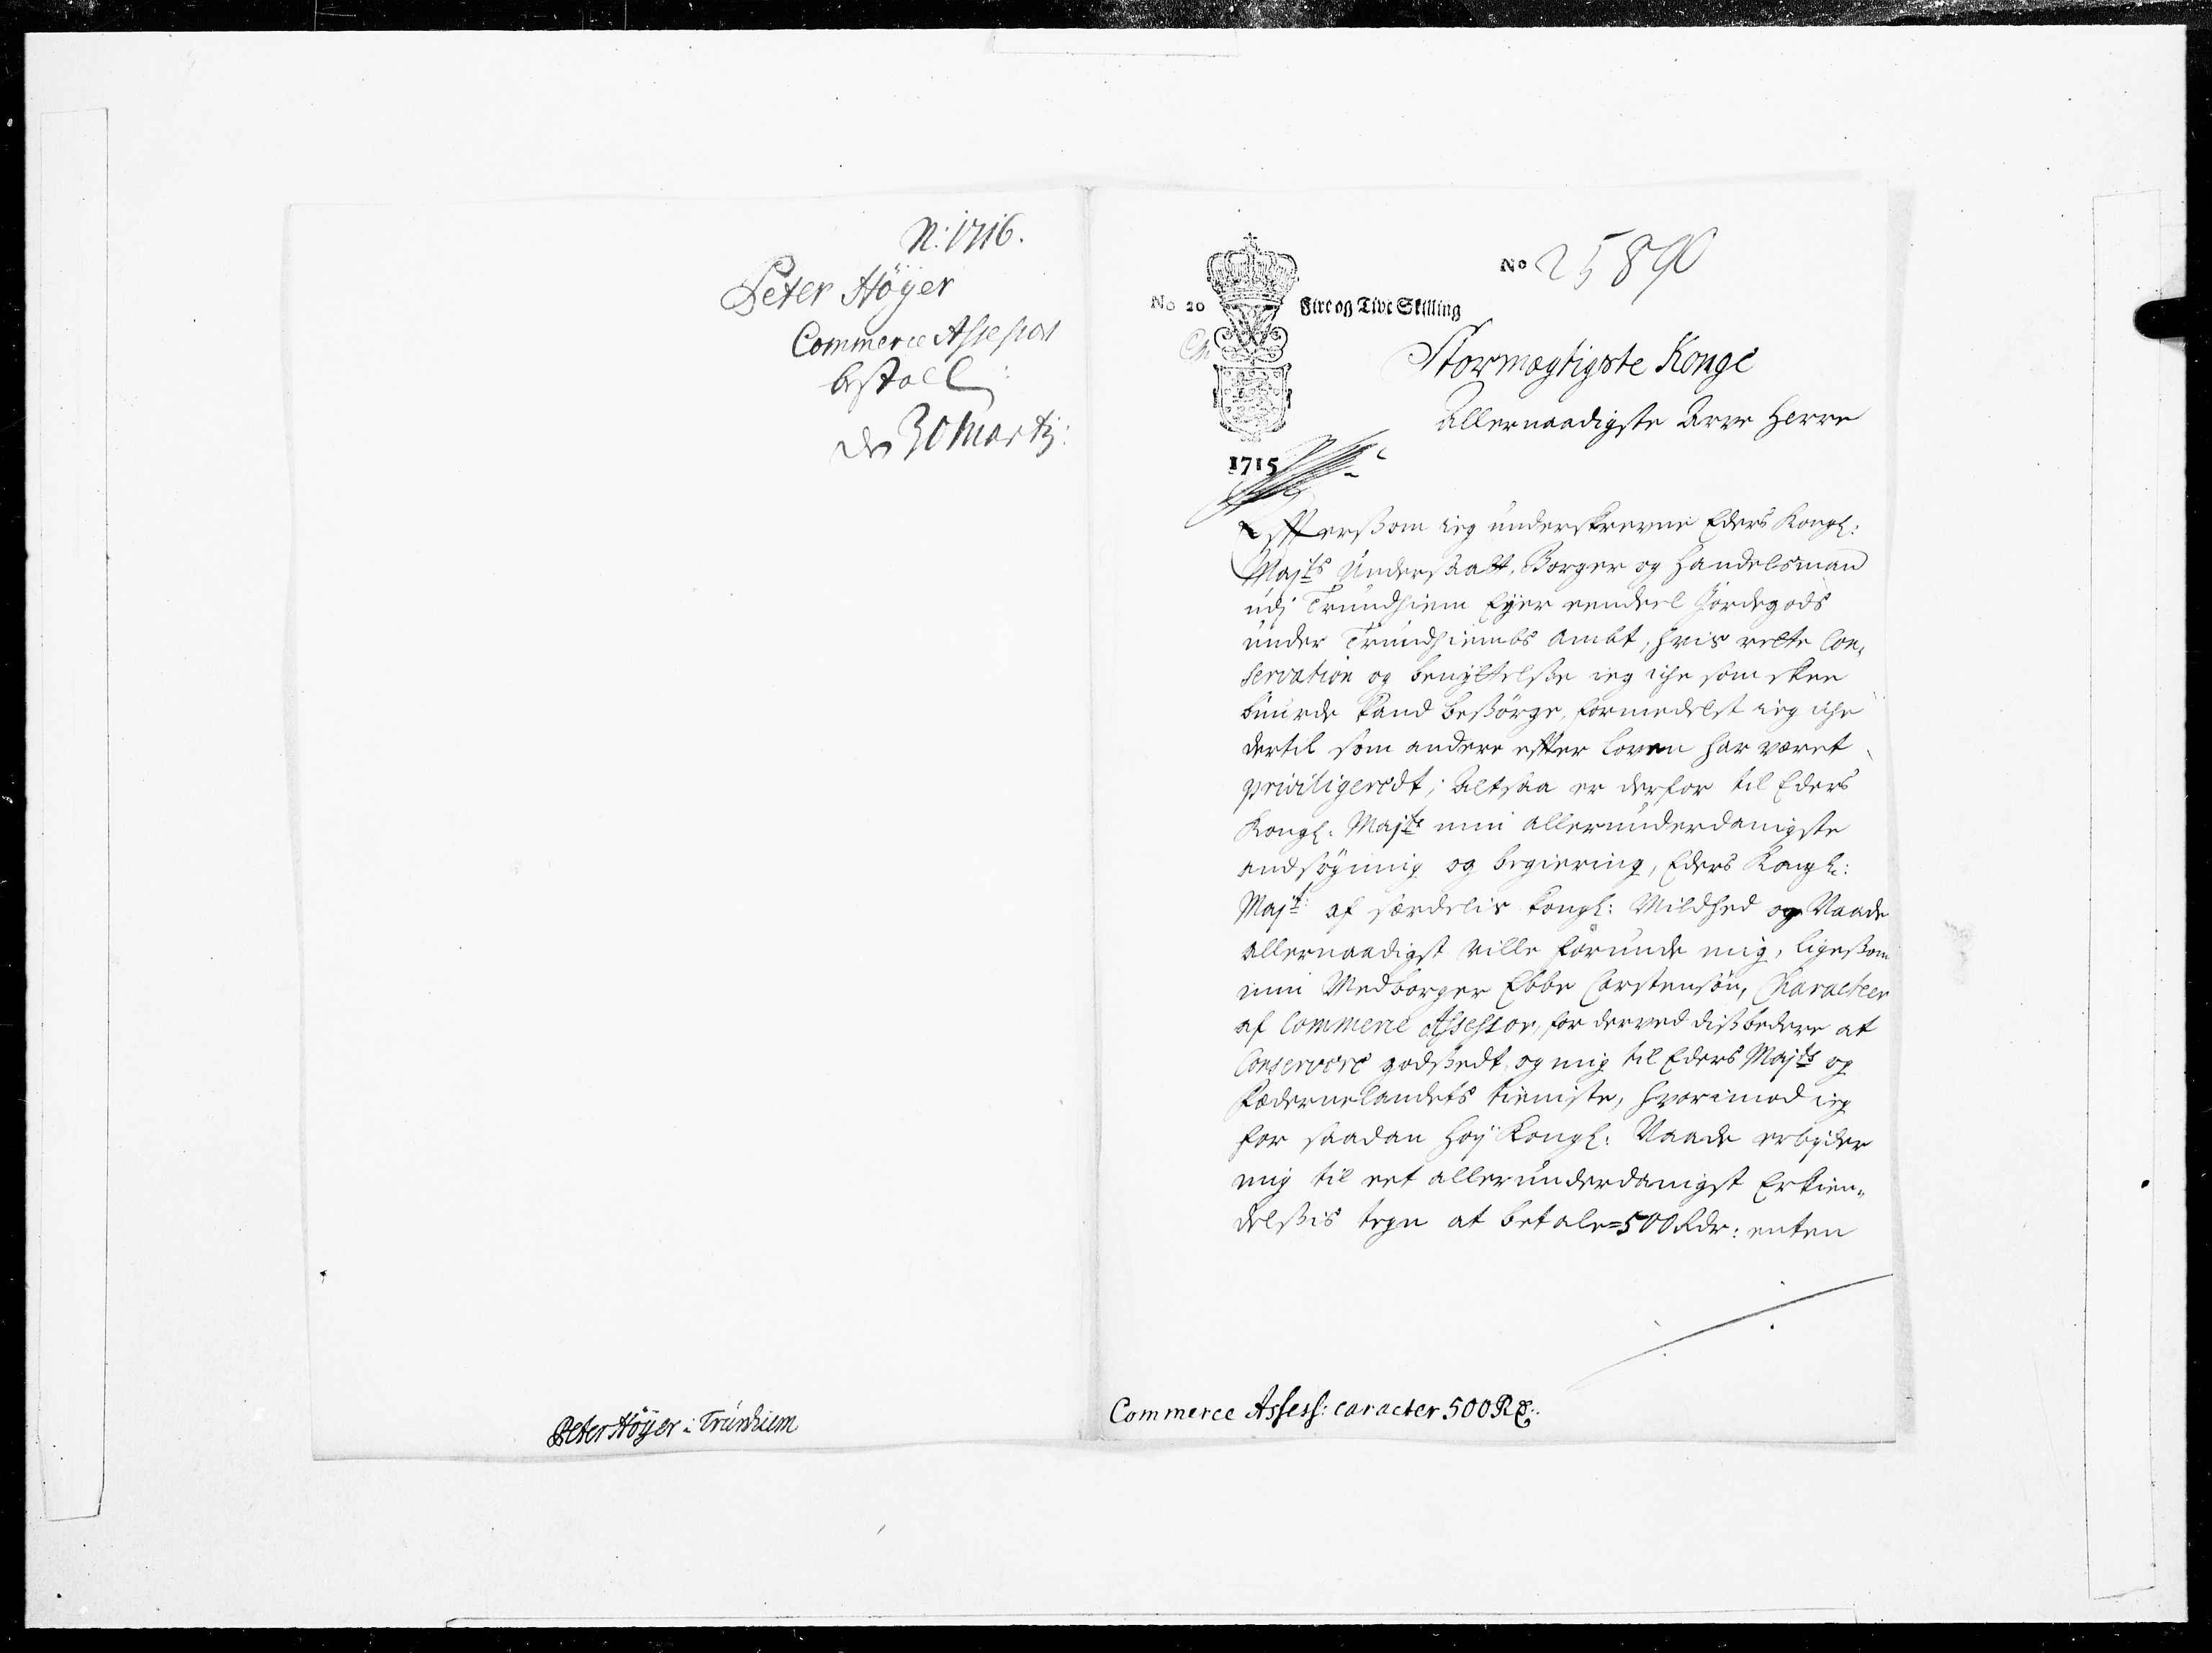 N: 1716.
Peter Höÿer
Commerce Assessor
bestall:
den 30 Martij:
Peter Höÿer i Trünhiem
No 2589
No 20 Fire og Tive Skilling
Stormægtigste Konge
Allernaadigste Arve Herre
1715
Effterßom ieg ünderskrevne Eders Kongl:
Majts Ünderßaatt, Borger og Handelsman
udj Trundhiem Eyer eendeel Jordegods
ünder Trundhiembs Ambt, hvis rette Con-
servation og benyttelße ieg iche som skee
büurde kand beßörge, formedelst ieg iche
dertil som andere effter loven har været
priviligeredt; Altsaa er derfor til Eders
Kongl: Majts min alleründerdanigste
andsögning og begiering, Eders Kongl:
Majt: af særdelis Kongl: Mildhed og Naade
allernaadigst ville forunde mig, ligeßom
min Medborger Ebbe Carstensön, Characteer
af Commerce Assessor, for derved dißbedere at
Conservere godßedt, og mig til Eders Majts og
Fædernelandets tieniste, hvorimod ieg
for saadan höy Kongl: Naade erbyder
mig til eet alleründerdanigst Erkien-
delßis tegn at betale=500 Rdr: enten
Commerce Assess: caracter 500 Rd: